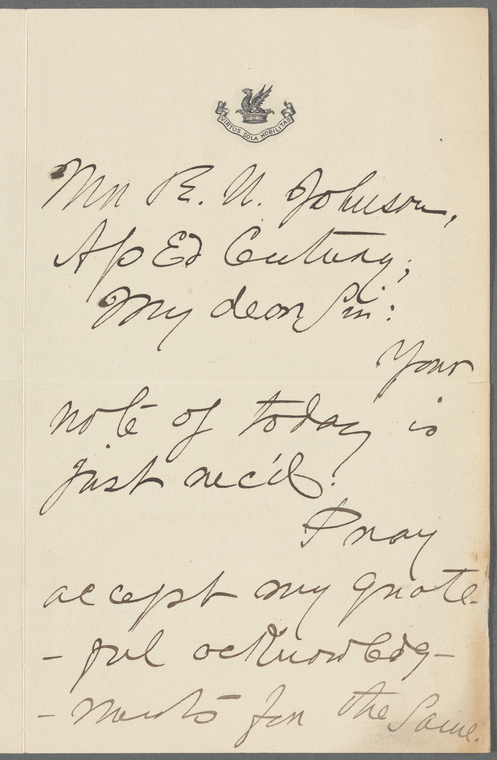 VIRTUS SOLA NOBILITAS
Mr R. U. Johnson,
As Ed Century;
My dear Sir:
Your
note of today is
just rec'd.
Pray
accept my grate-
-ful acknowledg-
-ments for the same.